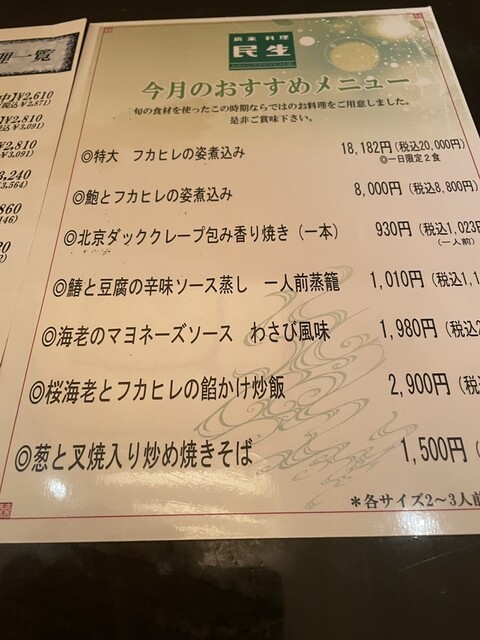 理一覧
中)¥2,610
税込 ¥2,871)
¥2,810
¥3,091)
¥2,810
¥3,091)
3,240
3,564)
860
146)
広東料理
民生
今月のおすすめメニュー
旬の食材を使ったこの時期ならではのお料理をご用意しました。
是非ご賞味下さい。
◎特大 フカヒレの姿煮込み 18,182円(税込20,000円)
◎一日限定2食
◎鮑とフカヒレの姿煮込み 8,000円(税込8,800円)
◎北京ダッククレープ包み香り焼き(一本) 930円(税込1,023円
(一人前)
◎鰆と豆腐の辛味ソース蒸し 一人前蒸籠 1,010円(税込1,1
◎海老のマヨネーズソース わさび風味 1,980円(税込
◎桜海老とフカヒレの餡かけ炒飯 2,900円(税
◎葱と叉焼入り炒め焼きそば 1,500円(
*各サイズ2〜3人前